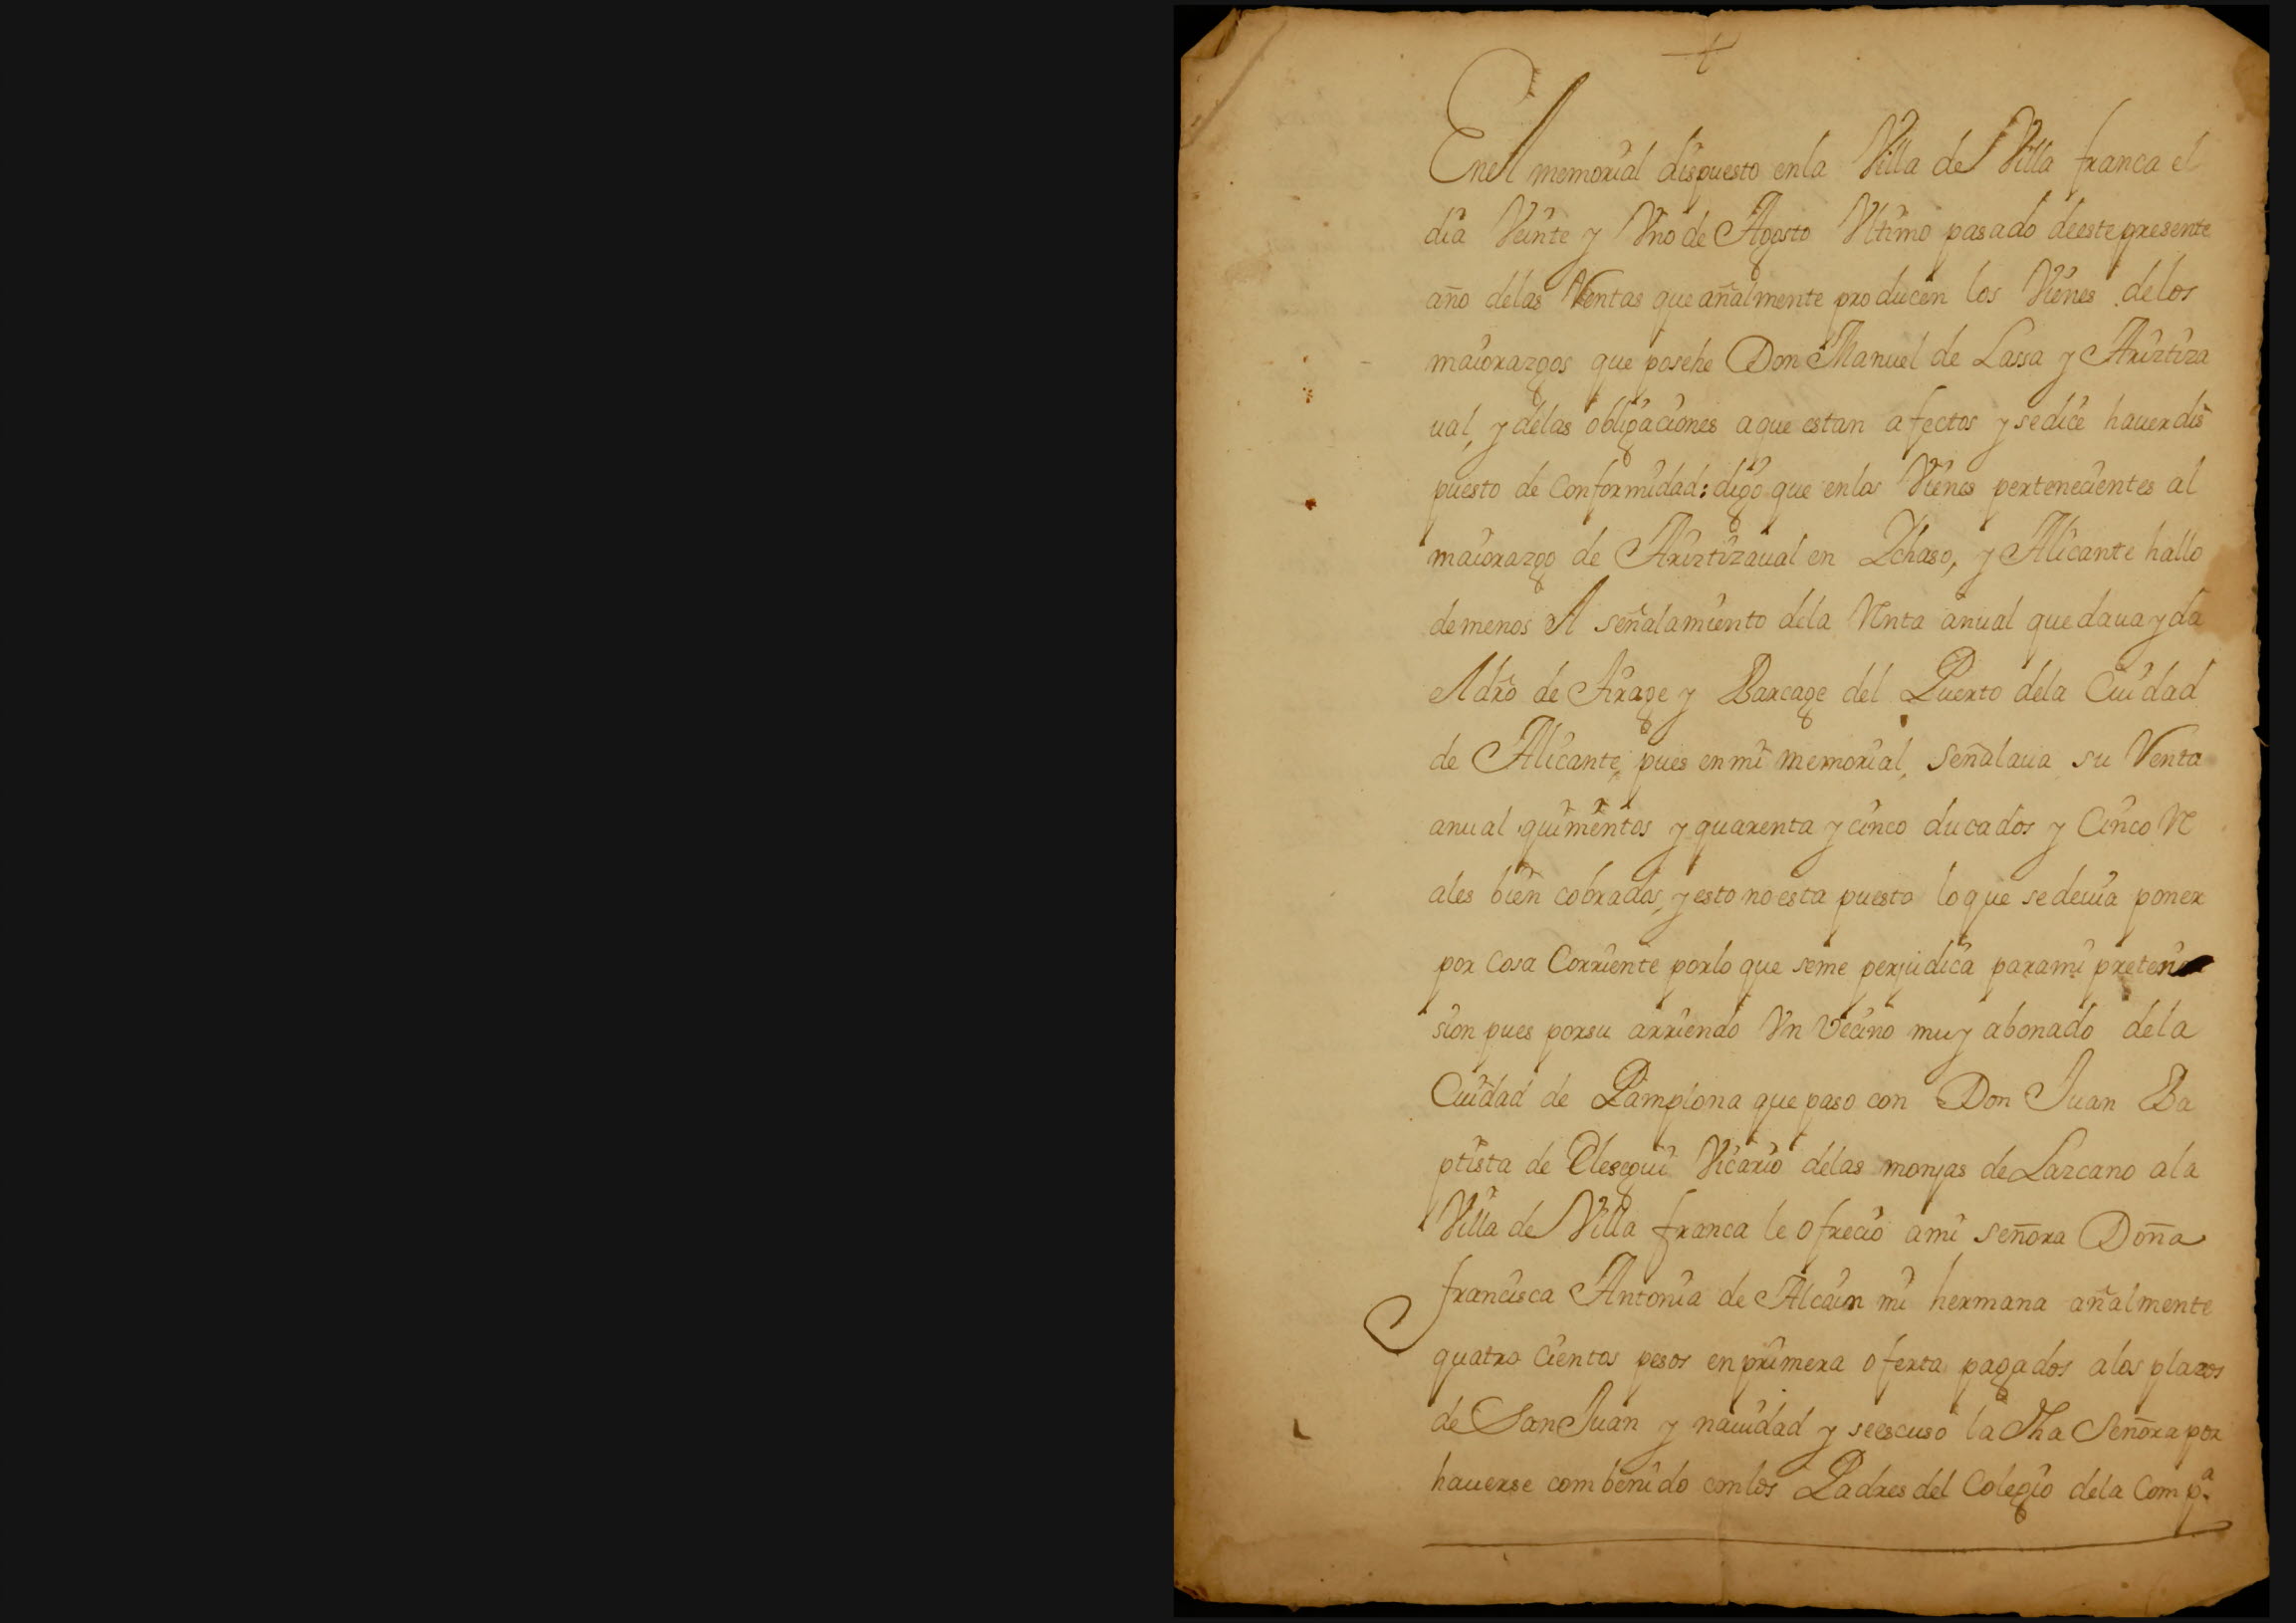 +
En el memorial dispuesto en la Villa de Villa franca el
dia Veinte y Vno de Agosto Vltimo pasado de este presente
año de las Rentas que añalmente producen los Vienes de los
maiorazgos que posehe Don Manuel de Lassa y Ariztiza
ual, y de las obligaciones a que estan afectos y se dice hauer dis
puesto de Conformidad: digo que en los Vienes pertenecientes al
maiorazgo de Ariztizaual en Ychaso, y Alicante hallo
de menos el señalamiento de la Renta anual que daua y da
el dro de Tirage y Barcage del Puerto de la Ciudad
de Alicante, pues en mi memorial, señalaua su Renta
anual quinientos y quarenta y cinco ducados y Cinco Re
ales bien cobrados, y esto no esta puesto lo que se deuia poner
por Cosa Corriente por lo que se me perjudica para mi preten
sion pues por su arriendo Vn Vecino muy abonado de la
Ciudad de Pamplona que paso con Don Juan Ba
ptista de Elesegui Vicario de las monjas de Lazcano a la
Villa de Villa franca le ofrecio a mi señora Doña
francisca Antonia de Alcain mi hermana añalmente
quatro Cientos pesos en primera oferta pagados a los plazos
de San Juan y nauidad y se escuso la dha Señora por
hauerse combenido con los Padres del Colegio de la Comp.ª